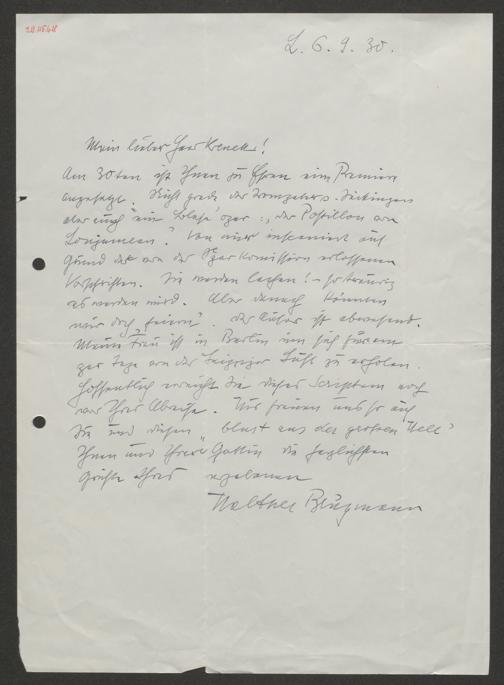 L. 6. 9. 30.
Mein lieber Herr Krenek!
Am 30ten ist Ihnen zu Ehren eine Premiere
angesagt. Nicht grade der Trompeter v. Säckingen
aber auch ein "Blase" oper: "der Postillon von
Lonjumeau". Von mir inszeniert auf
Grund der von der Sparkommission erlassenen
Vorschriften. Sie werden lachen! – so traurig
es werden wird. Aber danach könnten
wir doch "feiern". Der ist abwesend.
Meine Frau ist in Berlin um sich für ein
paar Tage von der Leipziger Luft zu erholen.
Hoffentlich erreicht Sie dieses Scriptum noch
vor Ihrer Abreise. Wir freuen uns so auf
Sie und diesen "bluat aus der grossen Welt"
Ihnen und Ihrer Gattin die herzlichsten
Grüße Ihres ergebenen
Walther Brügmann